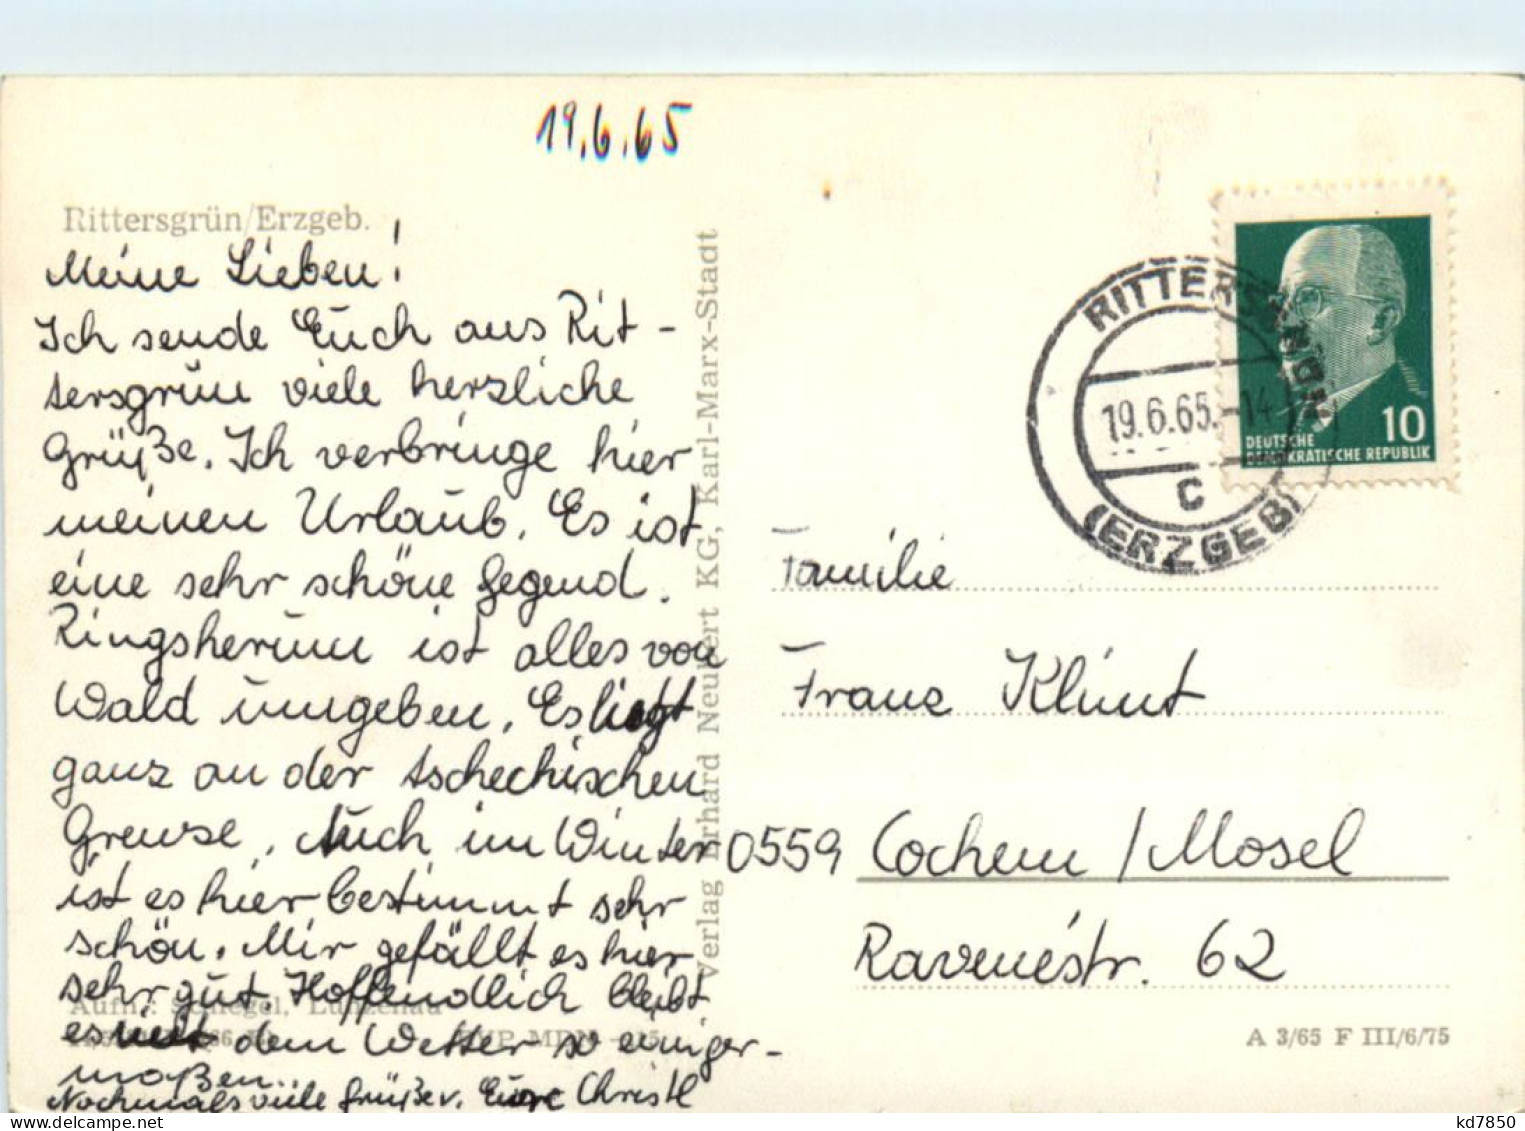 19.6.65
Rittersgrün/Erzgeb.
Meine Lieben!
Ich sende Euch aus Rit-
tersgrün viele herzliche
Grüße. Ich verbringe hier
meinen Urlaub. Es ist
eine sehr schöne Gegend.
Ringsherum ist alles von
Wald umgeben. Es liegt
ganz an der tschechischen
Grenze. Auch im Winter
ist es hier bestimmt sehr
schön. Mir gefällt es hier
sehr gut. Hoffendlich bleibt
es mit dem Wetter so einiger-
maßen..
Nochmals viele Grüße v. Eure Christl
Aufn.: Schlegel,
Verlag Erhard Neubert KG, Karl-Marx-Stadt
RITTERSGRÜN
19.6.65.-14
C
(ERZGEB)
10
DEUTSCHE
DEMOKRATISCHE REPUBLIK
Familie
Franz Klimt
0559 Cochem / Mosel
Ravenéstr. 62
A 3/65 F III/6/75
kd7850